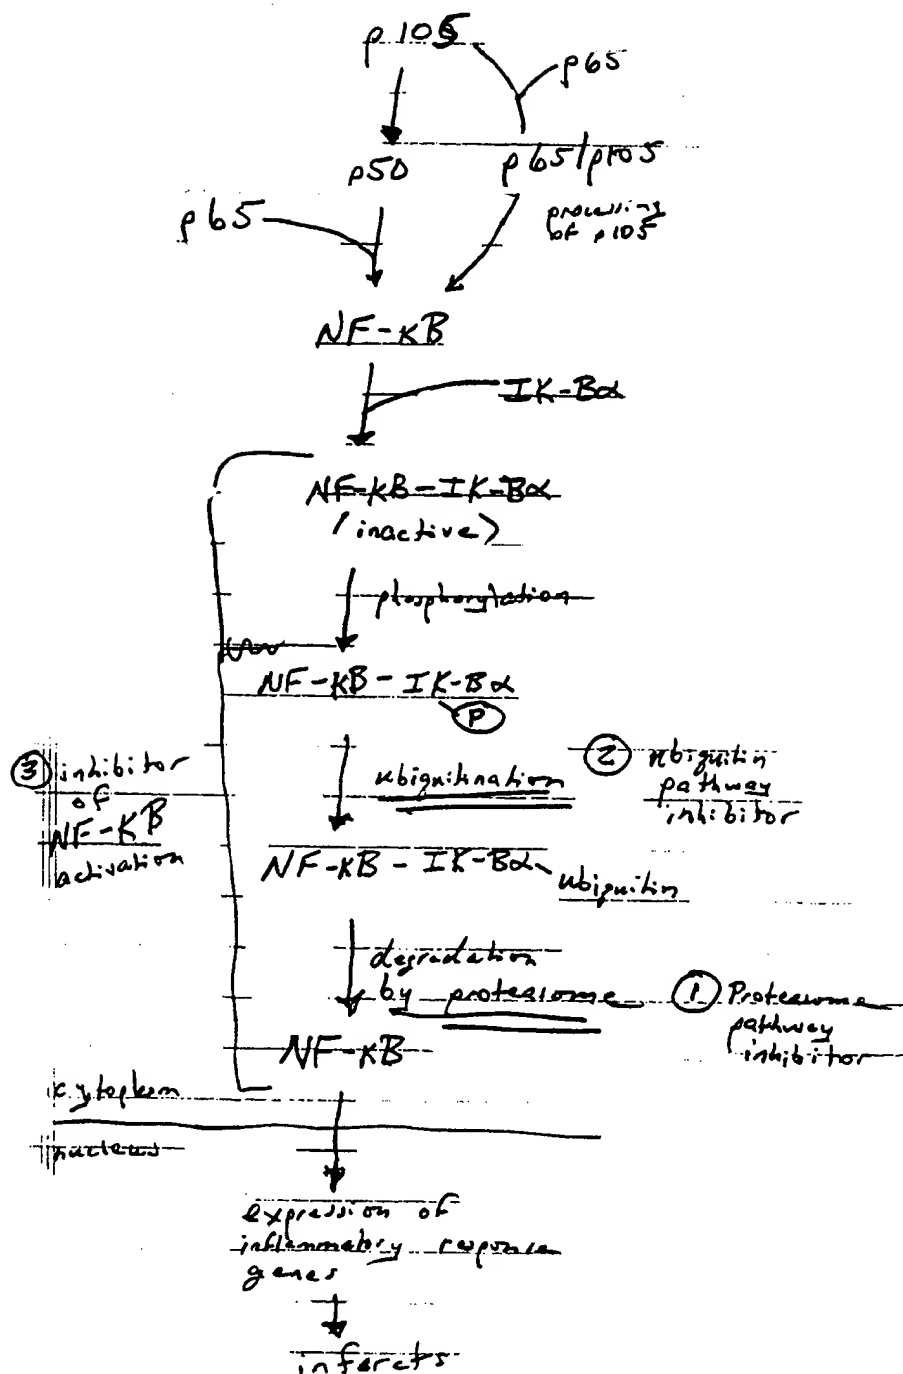 p105
p65
p50
p65/p105
processing
of p105
p65
NF-κB
IK-Bα
NF-KB-IK-Bα
(inactive)
phosphorylation
NF-KB-IK-Bα
P
③ inhibitor
of
NF-KB
activation
ubiquitination
② ubiquitin
pathway
inhibitor
NF-KB-IK-Bα-ubiquitin
degradation
by proteasome
① Proteasome
pathway
inhibitor
NF-KB
cytoplasm
nucleus
expression of
inflammatory response
genes
infarcts